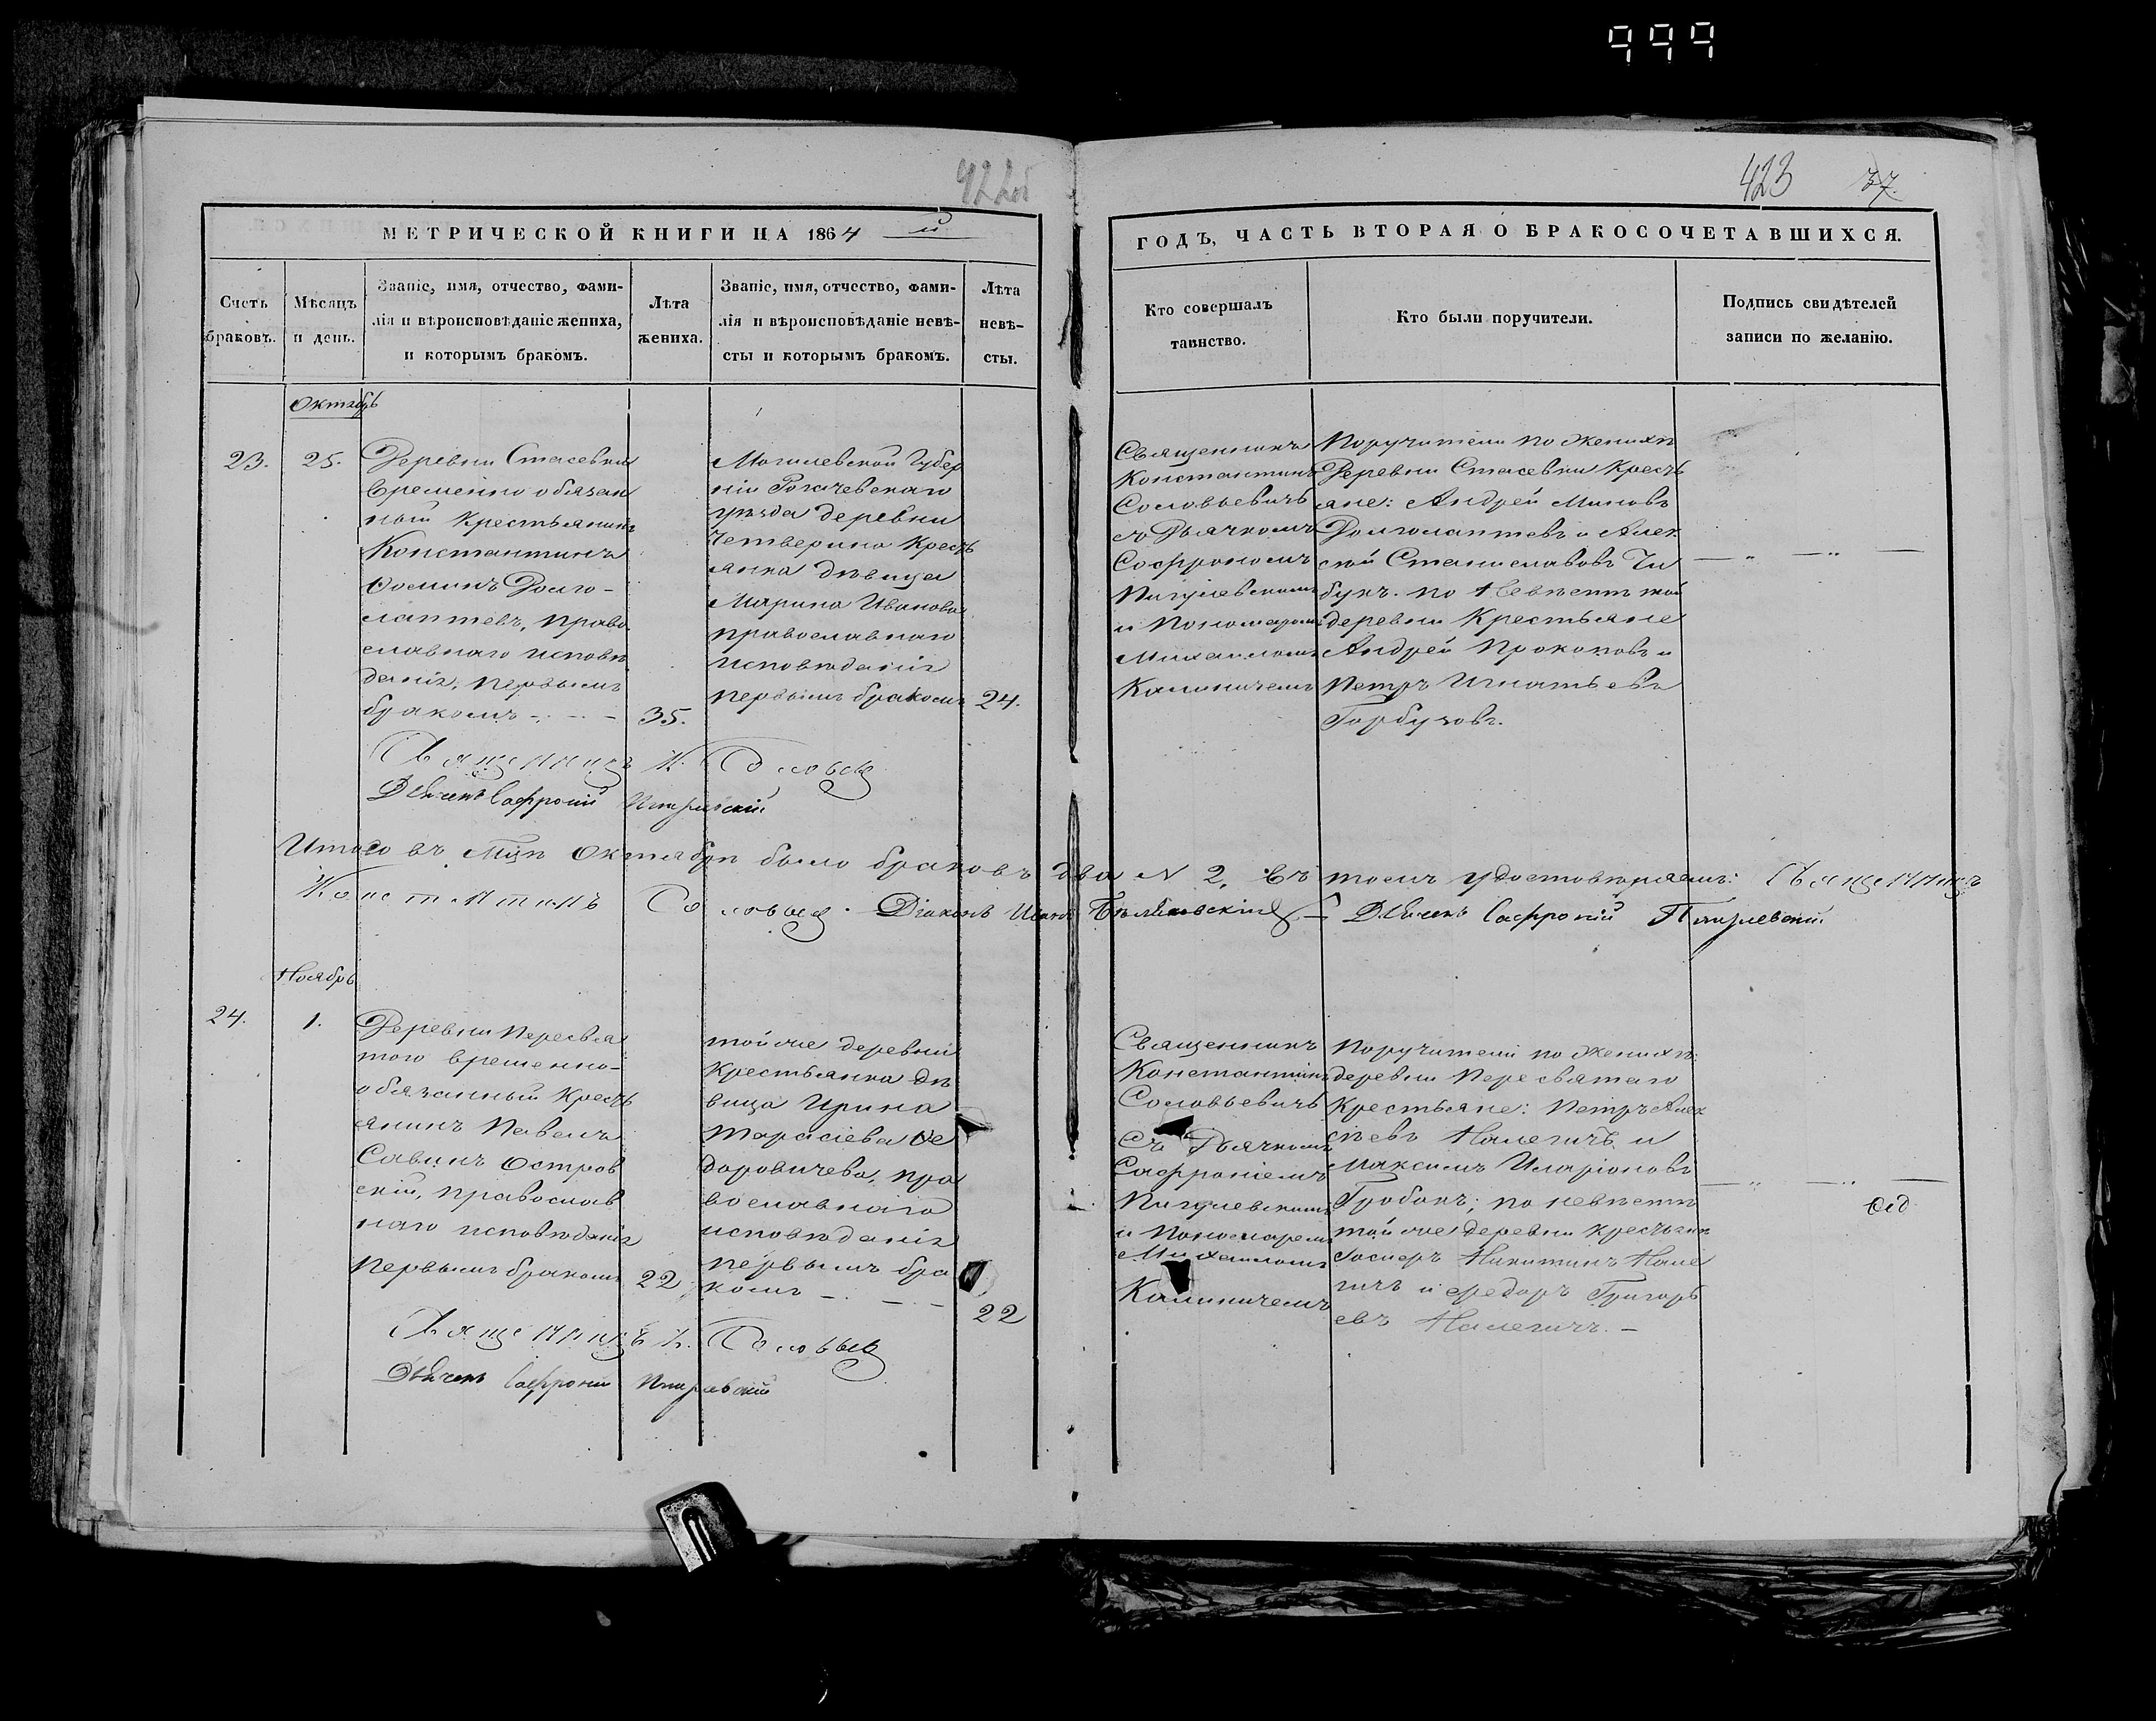 999
422об
423
37.
МЕТРИЧЕСКОЙ КНИГИ НА 1864 й
ГОДЪ, ЧАСТЬ ВТОРАЯ О БРАКОСОЧЕТАВШИХСЯ.
Счетъ
браковъ.
Мѣсяцъ
и день.
Званіе, имя, отчество, фами-
лія и вѣроисповѣданіе жениха,
и которымъ бракомъ.
Лѣта
жениха.
Званіе, имя, отчество, фами-
лія и вѣроисповѣданіе невѣ-
сты и которымъ бракомъ.
Лѣта
невѣ-
сты.
Кто совершалъ
таинство.
Кто были поручители.
Подпись свидѣтелей
записи по желанію.
Октябрь
23.
25.
Деревни Стасевки
временно обязан
ный Крестьянинъ
Константинъ
Ѳоминъ Долго-
лаптевъ, право
славнаго исповѣ
данія, первымъ
бракомъ
35.
Могилевской Губер
ніи Рогачевскаго
уѣзда деревни
Четверина Кресть
янка дѣвица
Марина Иванова
православнаго
исповѣданія
первымъ бракомъ
24.
Священникъ
Константинъ
Соловьевичъ
съ Дьячкомъ
Софрономъ
Пигулевскимъ
и Пономаремъ
Михаиломъ
Калиничемъ
Поручители по Женихѣ
Деревни Стасевки Кресть
яне: Андрей Миновъ
Долголаптевъ и Алек
сѣй Станиславовъ Чи
букъ. по Невѣстѣ той
деревни Крестьяне
Андрей Прокоповъ и
Петръ Игнатьевъ
Горбузовъ.
Священникъ К. Соловьев
Дьячекъ Софроній Пигулевскій
Итого въ Мцѣ Октябрѣ было браковъ два N 2, въ томъ удостовѣряемъ: Священникъ
Константинъ Соловьев. Діаконъ Бѣлявскій Дьячекъ Софроній Пигулевскій
Ноябрь
24.
1.
Деревни Пересвя
того временно-
обязанный Кресть
янинъ Павелъ
Савинъ Остров
скій, православ
наго исповѣданія
первымъ бракомъ
22
той же деревни
Крестьянка дѣ
вица Ирина
Тарасіева Ѳе
доровичева, пра
вославнаго
исповѣданія
первымъ бра
комъ
22
Священникъ
Константинъ
Соловьевичъ
Съ Дьячкомъ
Софроніемъ
Пигулевскимъ
и Пономаремъ
Михаиломъ
Калиничемъ
Поручители по Женихѣ:
деревни Пересвятаго
Крестьяне: Петръ Алек
сѣевъ Налегичъ и
Максимъ Иларіоновъ
Гробокъ; по невѣстѣ
той же деревни крестьяне
Никитинъ Нале
гичъ и Федоръ Григорь
евъ Налегичъ. —
Священникъ К. Соловьев
Дьячекъ Софроній Пигулевскій